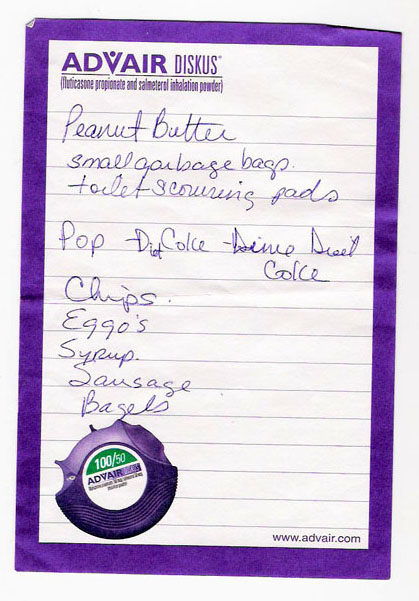 ADVAIR DISKUS®
(fluticasone propionate and salmeterol inhalation powder)
Peanut Butter
small garbage bags.
toilet scouring pads
Pop - Diet Coke - Lime Diet
Coke
Chips.
Eggo's
Syrup.
Sausage
Bagels
100/50
ADVAIR DISKUS
www.advair.com